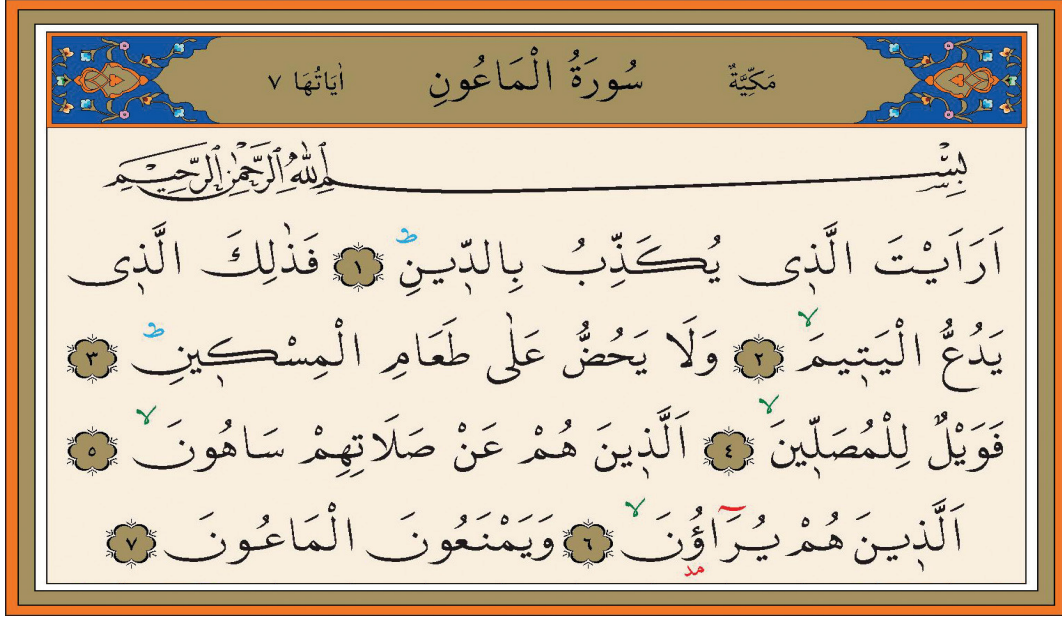 مَكِّيَّةٌ سُورَةُ الْمَاعُونِ اٰيَاتُهَا ٧
بِسْمِ اللّٰهِ الرَّحْمٰنِ الرَّحٖيمِ
اَرَاَيْتَ الَّذٖى يُكَذِّبُ بِالدّٖينِ ط ١ فَذٰلِكَ الَّذٖى
يَدُعُّ الْيَتٖيمَ لا ٢ وَلَا يَحُضُّ عَلٰى طَعَامِ الْمِسْكٖينِ ط ٣
فَوَيْلٌ لِلْمُصَلّٖينَ لا ٤ اَلَّذٖينَ هُمْ عَنْ صَلَاتِهِمْ سَاهُونَ لا ٥
اَلَّذٖينَ هُمْ يُرَآؤُنَ لا ٦ وَيَمْنَعُونَ الْمَاعُونَ ٧
مد